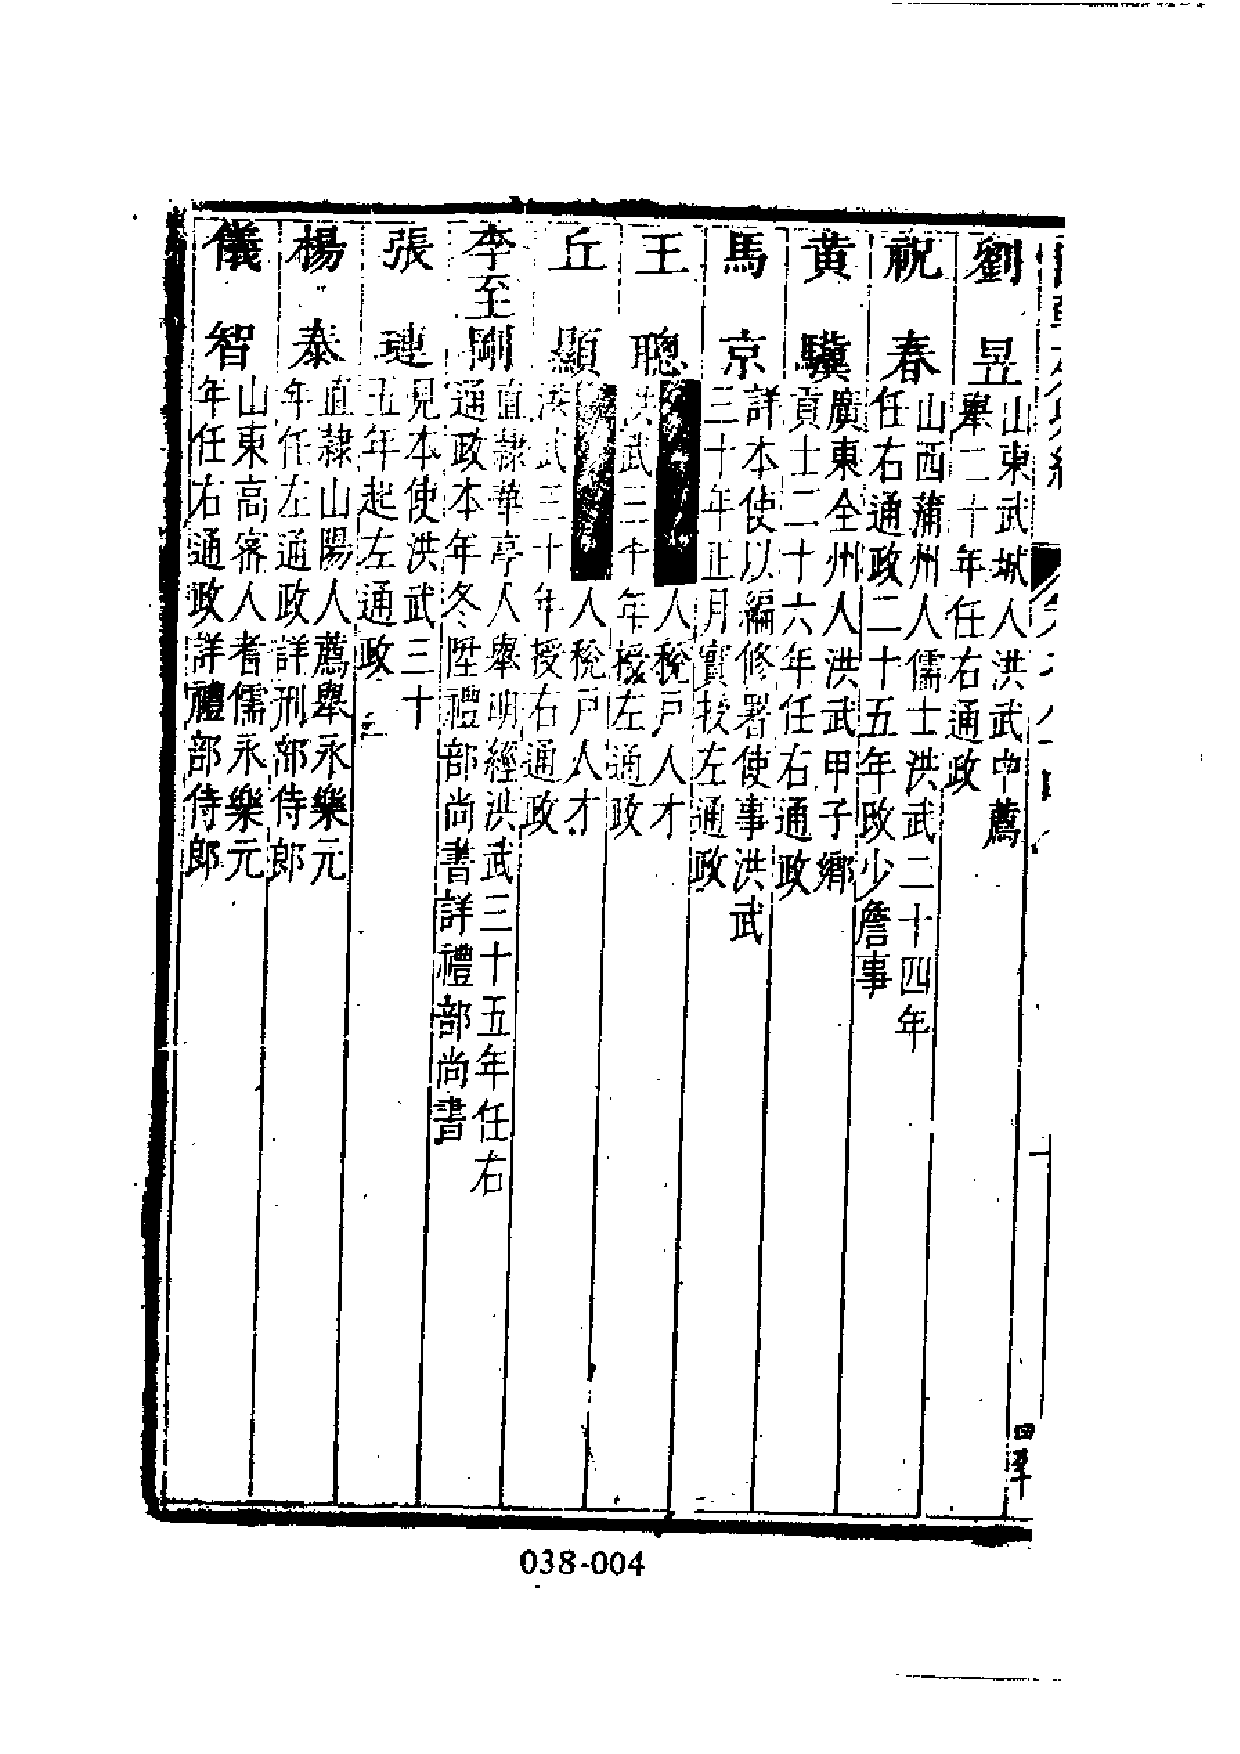 劉昱山東武城人洪武中薦
舉二十年任右通政
祝春山西蒲州人儒士洪武二十四年
任右通政二十五年改少詹事
黃驥廣東全州人洪武甲子鄉
貢士二十六年任右通政
馬京詳本使以編修署使事洪武
三十年正月實授左通政
王聰
人稅戶人才
洪武三十年授左通政
丘顯
人稅戶人才
洪武三十年授右通政
李至剛直隷華亭人舉明經洪武三十五年任右
通政本年冬陞禮部尚書詳禮部尚書
張璉見本使洪武三十
五年起左通政
楊泰直隷山陽人薦舉永樂元
年任左通政詳刑部侍郎
儀智山東高密人耆儒永樂元
年任右通政詳禮部侍郎
038-004